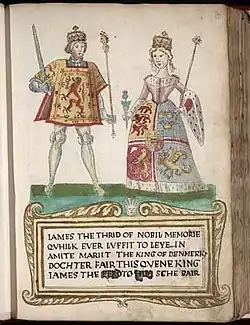 IAMES THE THRID OF NOBIL MEMORIE
QVHILK EVER LVFFIT TO LEVE IN
AMITE MARIIT THE KING OF DENMERK
DOCHTER FAIR THIS QVENE KING
IAMES THE SCHE BAIR